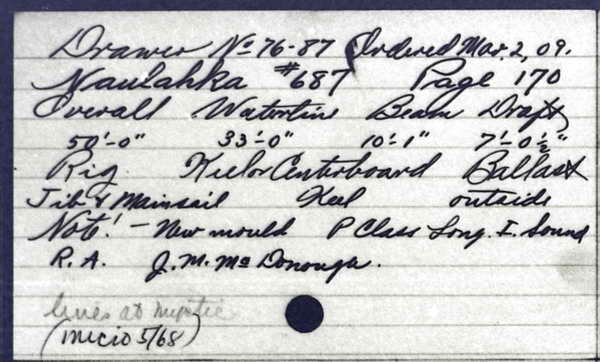 Drawer No 76-87 Ordered Mar. 2, 09.
Naulahka #687 Page 170
Overall Waterline Beam Draft
50'-0" 33'-0" 10'-1" 7'-0½"
Rig. Keel or Centerboard Ballast
Jib & Mainsail Keel outside
Note! - New mould P Class Long. I. Sound
R. A. J. M. McDonough.
lines at Mystic
(micro 5/68)